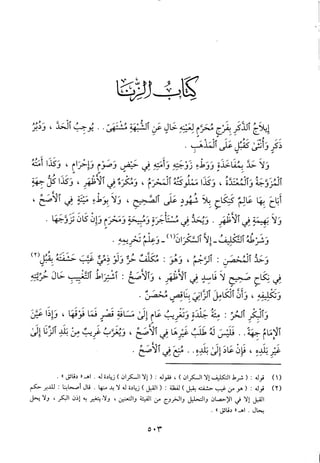 كتاب الزنا
إيلاج الذكر بفرج محرم لعينه خال عن الشبهة مشتهى.. يوجب الحد، ودبر
ذكر وأنثى كقبل على المذهب.
ولا حد بمفاخذة ووطء زوجته وأمته في حيض وصوم وإحرام، وكذا أمته
المزوجة والمعتدة، وكذا مملوكته المحرم، ومكره في الأظهر، وكذا كل جهة
أباح بها عالم كنكاح بلا شهود على الصحيح، ولا بوطء ميتة في الأصح،
ولا بهيمة في الأظهر. ويحد في مستأجرة ومبيحة ومحرم وإن كان تزوجها.
وشرطه التكليف - إلا السكران(١) - وعلم تحريمه.
وحد المحصن: الرجم، وهو: مكلف حر ولو ذمي غيب حشفته بقبل(٢)
في نكاح صحيح لا فاسد في الأظهر، والأصح: اشتراط التغييب حال حريته
وتكليفه، وأن الكامل الزاني بناقص محصن.
والبكر الحر: مئة جلدة وتغريب عام إلى مسافة قصر فما فوقها، وإذا عين
الإمام جهة.. فليس له طلب غيرها في الأصح، ويغرب غريب من بلد الزنا إلى
غير بلده، فإن عاد إلى بلده.. منع في الأصح.
(١) قوله: (شرط التكليف إلا السكران)، فقوله: (إلا السكران) زيادة له. اهـ « دقائق ».
(٢) قوله: (هو من غيب حشفته بقبل) لفظة: (القبل) زيادة له لا بد منها. قال أصحابنا: للدبر حكم
القبل إلا في الإحصان والتحليل والخروج من الفيئة والتعنين، ولا يتغير به إذن البكر، ولا يحل
بحال. اهـ « دقائق ».
٥٠٣